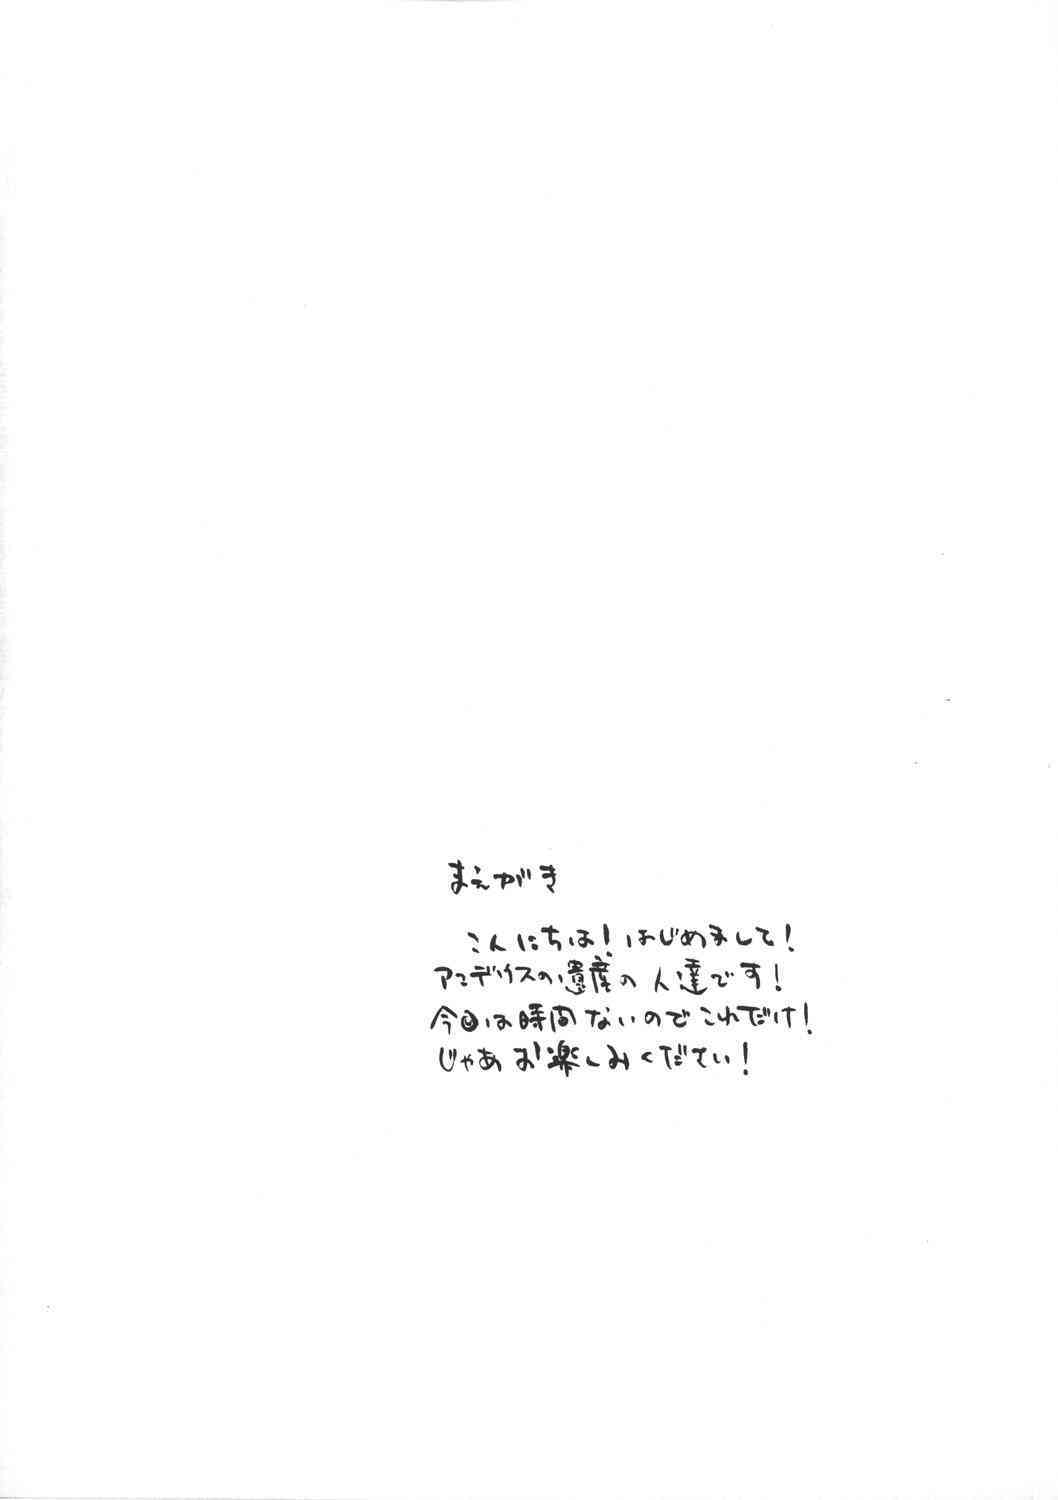 まえがき
こんにちは！はじめまして！
アンデイスの遺産の人達です！
今回は時間ないのでこれだけ！
じゃあお楽しみください！